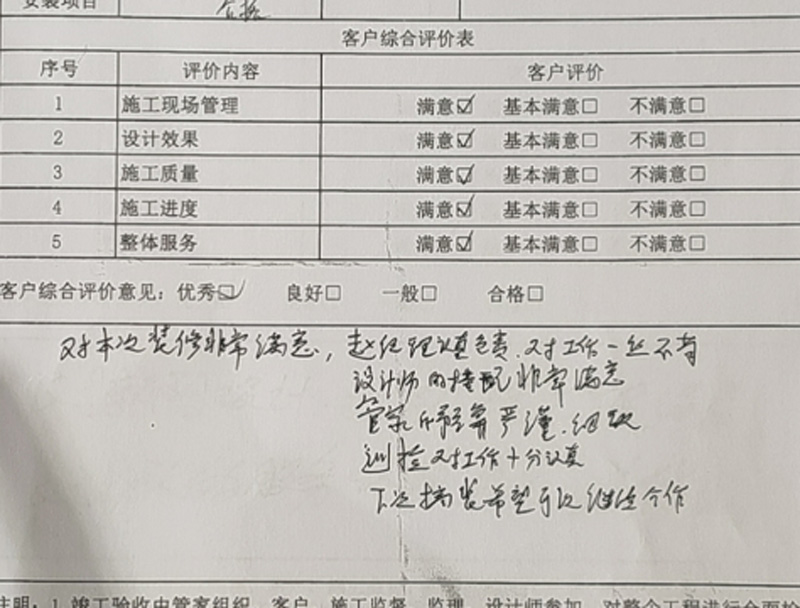 安装项目 合格
客户综合评价表
序号 评价内容 客户评价
1 施工现场管理 满意☑ 基本满意□ 不满意□
2 设计效果 满意☑ 基本满意□ 不满意□
3 施工质量 满意☑ 基本满意□ 不满意□
4 施工进度 满意☑ 基本满意□ 不满意□
5 整体服务 满意☑ 基本满意□ 不满意□
客户综合评价意见：优秀☑ 良好□ 一般□ 合格□
对本次装修非常满意，赵经理认真负责．对工作一丝不苟
设计师的搭配非常满意
管家 预算严谨．细致
巡检对工作十分认真
下次搞装希望可以继续合作
注明：1 竣工验收由管家组织，客户、施工监督、监理、设计师参加，对整个工程进行全面